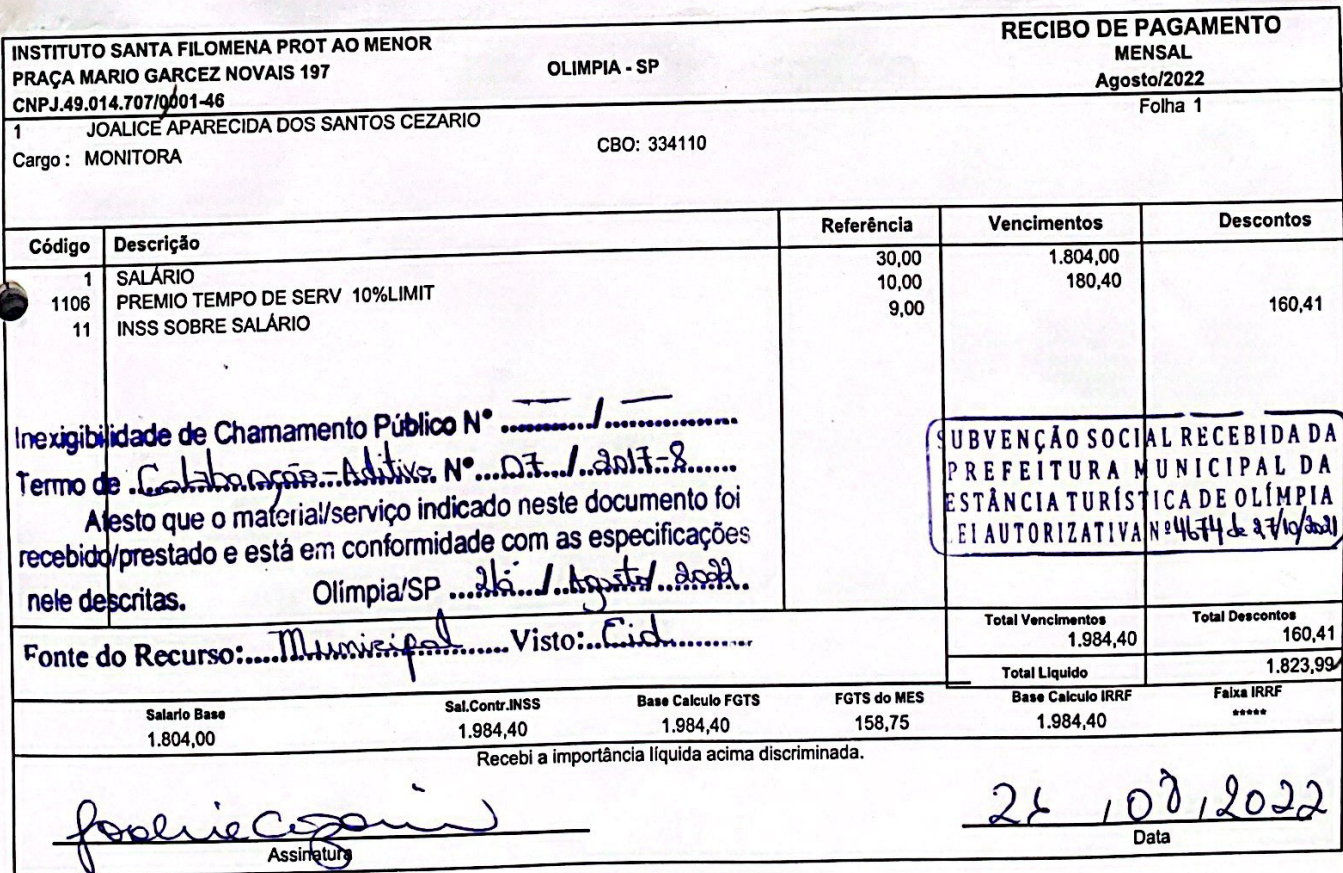 INSTITUTO SANTA FILOMENA PROT AO MENOR
PRAÇA MARIO GARCEZ NOVAIS 197 OLIMPIA - SP
CNPJ.49.014.707/0001-46
RECIBO DE PAGAMENTO
MENSAL
Agosto/2022
Folha 1
1 JOALICE APARECIDA DOS SANTOS CEZARIO
Cargo : MONITORA CBO: 334110
Código Descrição Referência Vencimentos Descontos
1 SALÁRIO 30,00 1.804,00
1106 PREMIO TEMPO DE SERV 10%LIMIT 10,00 180,40
11 INSS SOBRE SALÁRIO 9,00 160,41
Inexigibilidade de Chamamento Público Nº — / —
Termo de Colaboração-Aditivo Nº 07 / 2017-8
Atesto que o material/serviço indicado neste documento foi
recebido/prestado e está em conformidade com as especificações
nele descritas. Olímpia/SP 26 / Agosto / 2022
SUBVENÇÃO SOCIAL RECEBIDA DA
PREFEITURA MUNICIPAL DA
ESTÂNCIA TURÍSTICA DE OLÍMPIA
LEI AUTORIZATIVA Nº 4674 de 27/10/2021
Fonte do Recurso: Municipal Visto: Cid
Total Vencimentos Total Descontos
1.984,40 160,41
Total Liquido 1.823,99
Salario Base Sal.Contr.INSS Base Calculo FGTS FGTS do MES Base Calculo IRRF Faixa IRRF
1.804,00 1.984,40 1.984,40 158,75 1.984,40 *****
Recebi a importância líquida acima discriminada.
26 / 08 / 2022
Assinatura Data